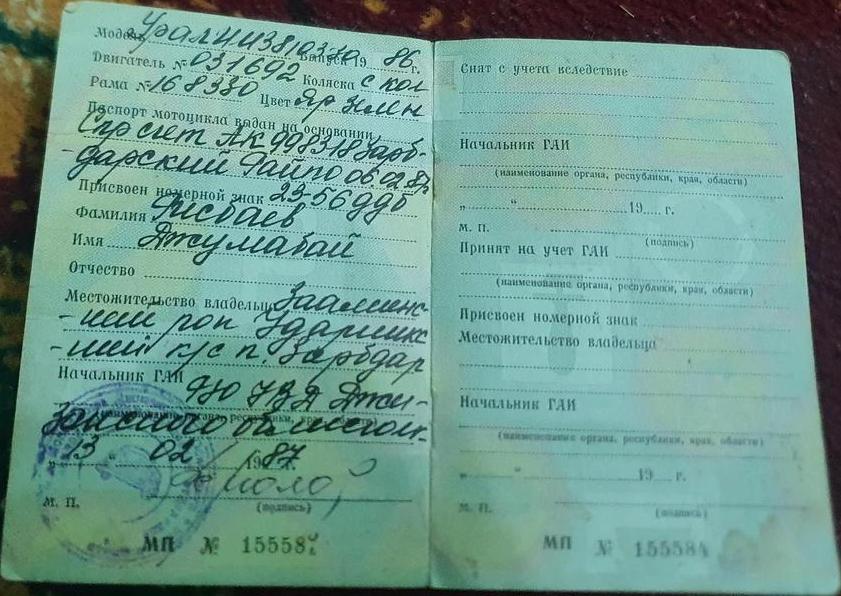 Модель Урал ИМЗ 810330 Выпуск 19 86 г.
Двигатель № 031692 Коляска с кол
Рама № 168330 Цвет Яр зелен
Паспорт мотоцикла выдан на основании
Спр счет АК 998318 Зарб-
-дарский Райпо 06.02.87г
Присвоен номерной знак 23-56 ддб
Фамилия
Имя Джумабай
Отчество
Местожительство владельца Зааминс-
-кий
-кий к/с п. Зарбдар
Начальник ГАИ УВД Джи-
(наименование органа, республики, края, области)
„13“ 02 1987 г.
М. П.
(подпись)
МП № 15558
Снят с учета вследствие
Начальник ГАИ
(наименование органа, республики, края, области)
„ “ 19 г.
М. П.
(подпись)
Принят на учет ГАИ
(наименование органа, республики, края, области)
Присвоен номерной знак
Местожительство владельца
Начальник ГАИ
(наименование органа, республики, края, области)
„ “ 19 г.
М. П.
(подпись)
МП № 155584